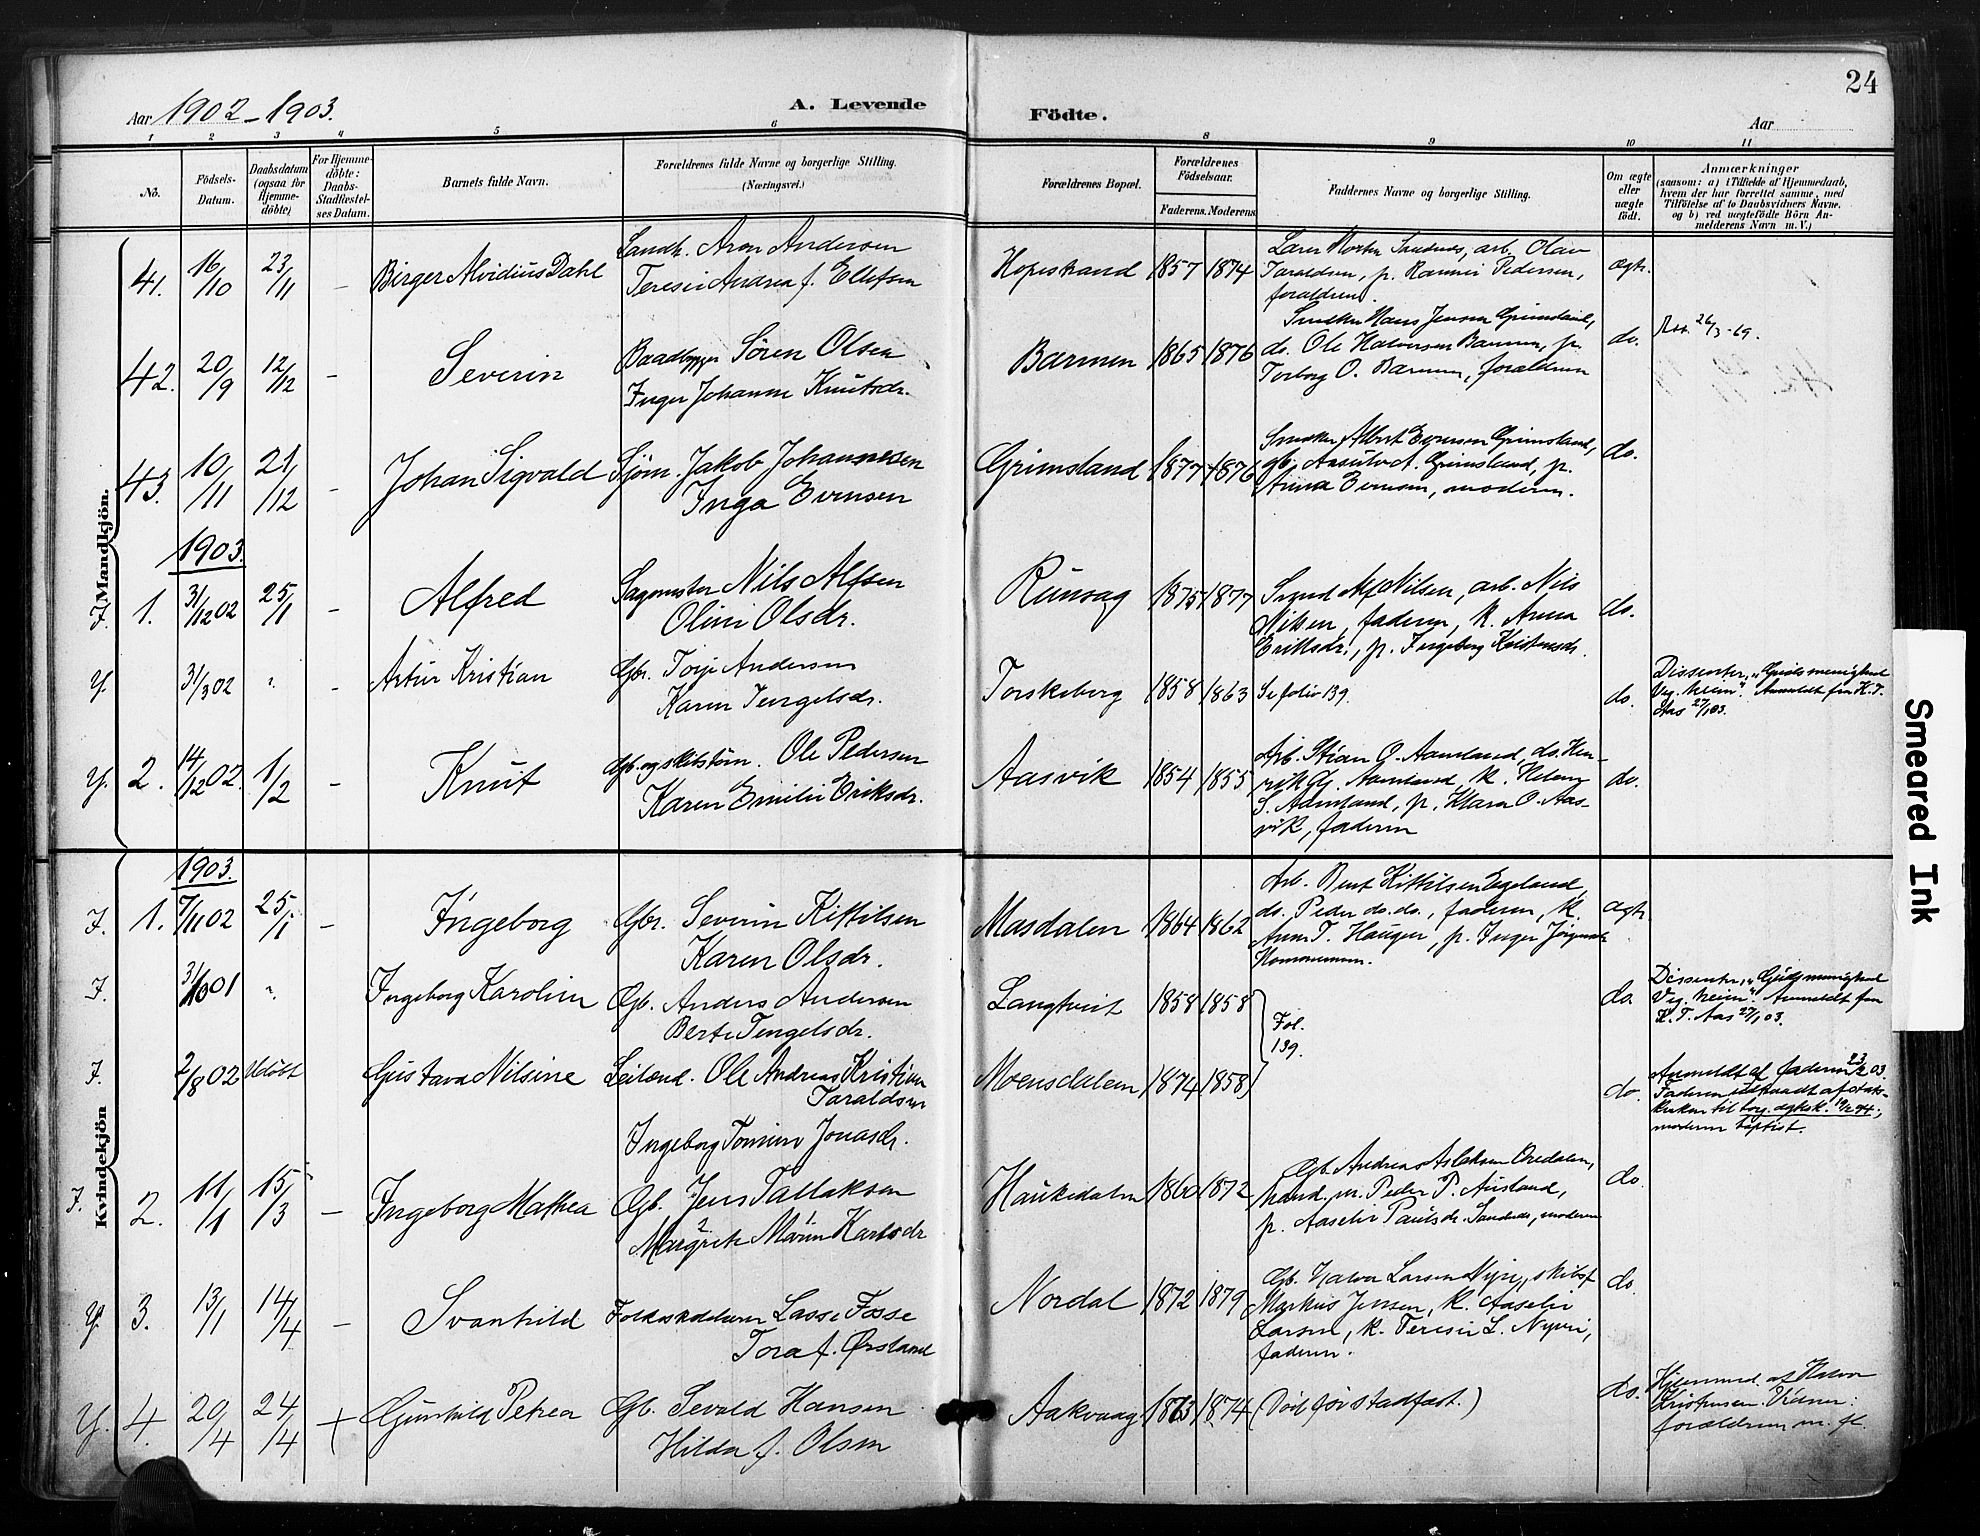 24
Aar 1902-1903.
A. Levende Födte.
Aar
1 2 3 4 5 6 8 9 10 11
No.
Födsels-Datum.
Daabsdatum (ogsaa for Hjemme-döbte)
For Hjemme-döbte: Daabs-Stadfæstel-ses Datum.
Barnets fulde Navn.
Forældrenes fulde Navne og borgerlige Stilling. (Næringsvei.)
Forældrenes Bopæl.
Forældrenes Födselsaar.
Faderens. Moderens.
Faddernes Navne og borgerlige Stilling.
Om ægte eller uægte födt.
Anmærkninger
(saasom: a) i Tilfælde af Hjemmedaab,
hvem der har forrettet samme, med
Tilföielse af to Daabsvidners Navne.
og b) ved uægtefödte Börn An-
melderens Navn m. V.)
Mandkjön.
41. 16/10 23/11 - Birger Alvidius Dahl
Landh. Aron Andersen
Teresie Andrea f. Ellefsen
Hopestrand 1857 1874
Lærer Morten Sandnes, arb. Olav
Taraldsen, p. Ramnei Pedersen,
forældrene.
ægte.
42. 20/9 12/12 - Severin
Baadbygger Søren Olsen
Inger Johanne Knutsdr.
Barmen 1865 1876
Snedker Hans Jensen Grimsland,
ds. Ole Halvorsen Barmen, p.
Torborg O. Barmen, forældrene
do.
26/3-69.
43. 10/11 21/12 - Johan Sigvald
Sjøm. Jakob Johannesen
Inga Evensen
Grimsland 1877 1876
Snedker Albert Evensen Grimsland,
gb. Aasulv A. Grimsland, p.
Anna Evensen, moderen.
do.
1903.
J. 1. 31/12 02 25/1 - Alfred
Sagmester Nils Alfsen
Olivie Olsdr.
Runsag 1875 1877
Svend Alf Nilsen, arb. Nils
Nilsen, faderen, k. Anna
Eriksdr., p. Ingeborg Kristensdr.
do.
Y. 31/3 02 " - Artur Kristian
Gbr. Torje Andersen
Karen Tengelsdr.
Torskeberg 1858 1863
Se folio 139.
do.
Dissenter, "Guds menighed
Veg. heim". Anmeldt fra K. T.
Aas 27/1 03.
Y. 2. 14/12 02. 1/2 - Knut
Gb. og skibstøm. Ole Pedersen
Karen Emilie Eriksdr.
Aasvik 1854 1855
Arb. Stian O. Aamland, ds. Hen-
rik G. Aamland, k. Helene
S. Aamland, p. Klara O. Aas-
vik, faderen
do.
Kvindekjön
1903.
J. 1. 7/11 02 25/1 - Ingeborg
Gbr. Severin Kittilsen
Karen Olsdr.
Masdalen 1864 1862
Arb. Bent Kittilsen Egeland,
ds. Peder do. do., faderen, k.
Anne T. Haugen, p. Inger Jørgine
ægte
J. 31/10 01 " Ingeborg Karoline
Gb. Anders Andersen
Berte Tengelsdr.
Langtveit 1858 1858
Fol.
139.
do.
Dissenter, "Guds menighed
Veg. heim". Anmeldt fra
K. T. Aas 27/1 03.
J. 2/8 02 Udøbt Gustava Nilsine
Leilænd. Ole Andreas Kristian
Taraldsen
Ingeborg Tomine Jonasdr.
Moensdalen 1874 1858
do.
Anmeldt af faderen 23/2 03.
Faderen udtraadt af stats-
kirken til borg. ægtesk. 19/2 94.,
moderen baptist.
J. 2. 11/1 15/3 - Ingeborg Mathea
Gb. Jens Tallaksen
Margrete Marie Karlsdr
Haukedalen 1860 1872
Gb. Andreas Aslaksen Øvedalen,
hand. m. Peder P. Ausland,
p. Aaselie Paulsdr. Sandnes, moderen
do
Y. 3. 13/1 14/4 - Svanhild
Folkeskolelærer Lasse Fosse
Tora f. Ørsland
Nordal 1872 1879
Gb. Halvor Larsen Nyvei, skibst
Markus Jensen, k. Aaselie
Larsen, k. Teresie L. Nyvei,
faderen.
do.
Y. 4. 20/4 24/4 + Gunhild Petrea
Gb. Sevald Hansen
Hilda f. Olsen
Aakvaag 1863 1874
(Død før stadfæst.)
do.
Hjemmed. af Halvor
Kristensen. Vidner:
forældrene m. fl.
Smeared Ink